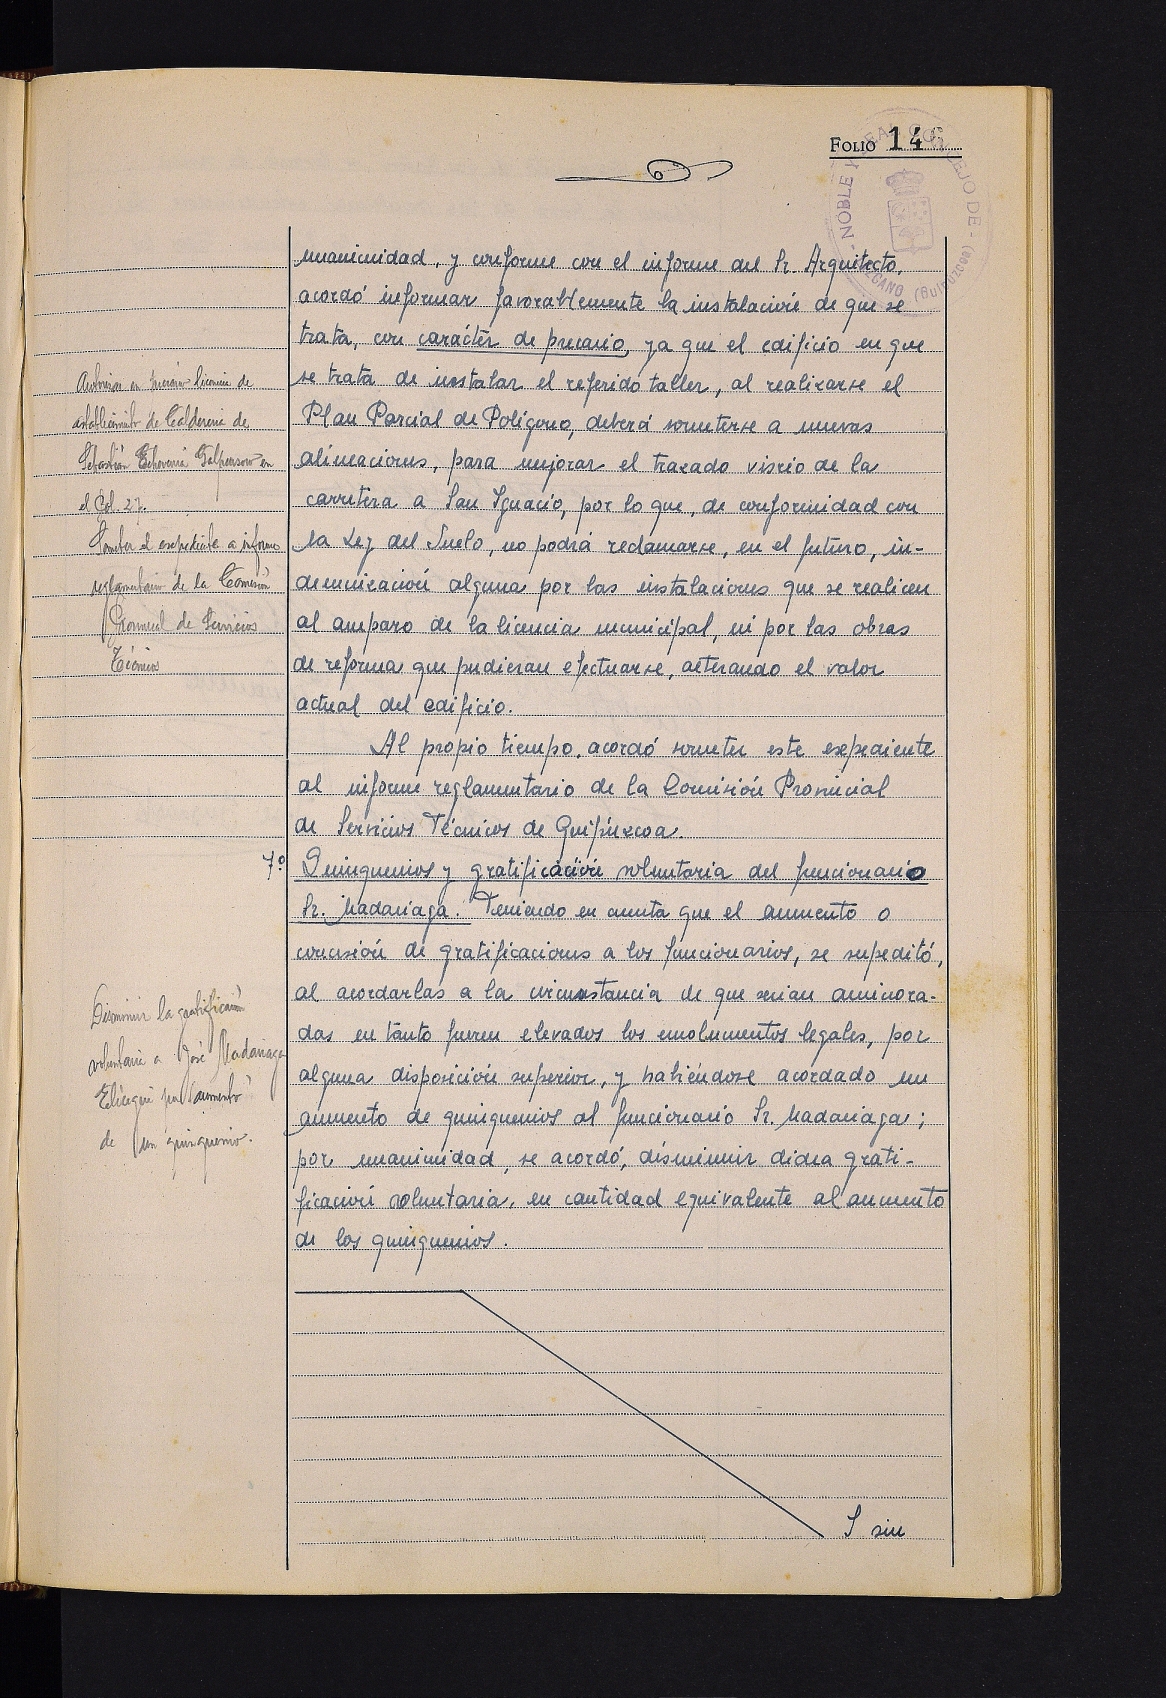 FOLIO 146
NOBLE Y LEAL CONCEJO DE - LEZCANO (Guipuzcoa)
unanimidad, y conforme con el informe del Sr. Arquitecto,
acordó informar favorablemente la instalación de que se
trata, con carácter de precario, ya que el edificio en que
se trata de instalar el referido taller, al realizarse el
Plan Parcial de Polígono, deberá someterse a nuevas
alineaciones, para mejorar el trazado viario de la
carretera a San Ignacio, por lo que, de conformidad con
la Ley del Suelo, no podrá reclamarse, en el futuro, in-
demnización alguna por las instalaciones que se realicen
al amparo de la licencia municipal, ni por las obras
de reforma que pudieran efectuarse, alterando el valor
actual del edificio.
Al propio tiempo, acordó someter este expediente
al informe reglamentario de la Comisión Provincial
de Servicios Técnicos de Guipúzcoa.
establecimiento de Calderería de
Sebastián Echeverría en
el Pol. 27.
Someter el expediente a informe
reglamentario de la Comisión
Provincial de Servicios
Técnicos
7º Quinquenios y gratificación voluntaria del funcionario
Sr. Madariaga. Teniendo en cuenta que el aumento o
concesión de gratificaciones a los funcionarios, se supeditó,
al acordarlas a la circunstancia de que serian aminora-
das en tanto fueren elevados los emolumentos legales, por
alguna disposición superior, y habiéndose acordado un
aumento de quinquenios al funcionario Sr. Madariaga;
por unanimidad, se acordó, disminuir dicha grati-
ficación voluntaria, en cantidad equivalente al aumento
de los quinquenios.
Disminuir la gratificación
voluntaria a José Madariaga
Elicegui por aumento
de un quinquenio.
S sin